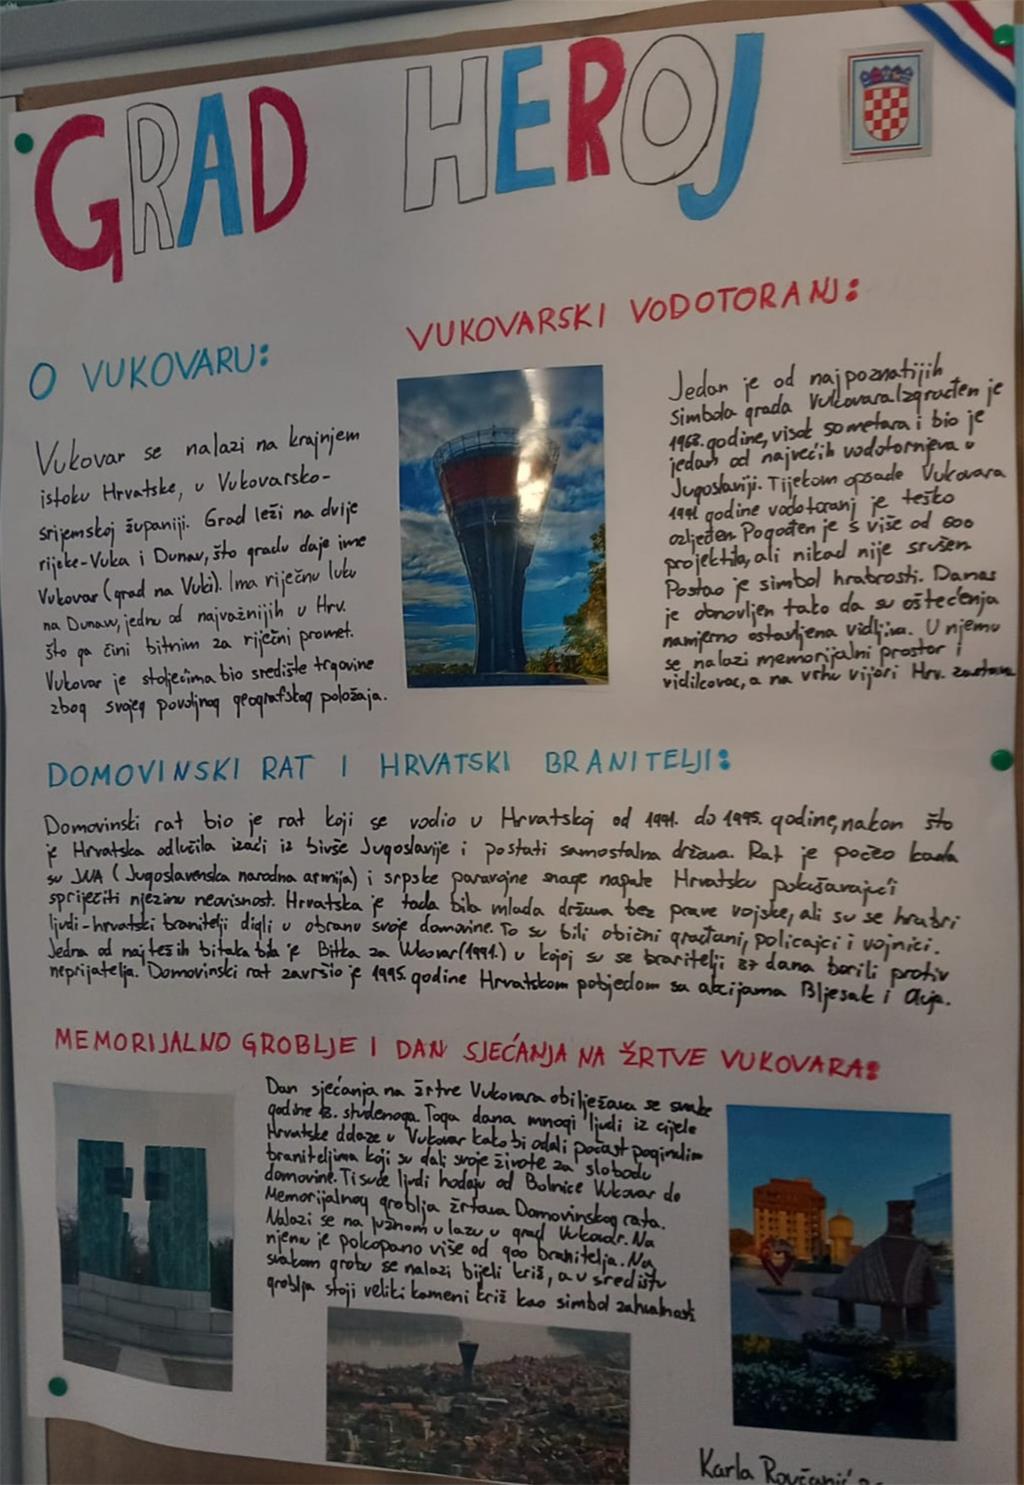 GRAD HEROJ
O VUKOVARU:
Vukovar se nalazi na krajnjem
istoku Hrvatske, u Vukovarsko-
srijemskoj županiji. Grad leži na dvije
rijeke-Vuka i Dunav, što gradu daje ime
Vukovar (grad na Vuki). Ima riječnu luku
na Dunavu, jednu od najvažnijih u Hrv.
što ga čini bitnim za riječni promet.
Vukovar je stoljećima bio središte trgovine
zbog svojeg povoljnog geografskog položaja.
VUKOVARSKI VODOTORANJ:
Jedan je od najpoznatijih
simbola grada Vukovara. Izgrađen je
1968. godine, visok 50 metara i bio je
jedan od najvećih vodotornjeva u
Jugoslaviji. Tijekom opsade Vukovara
1991 godine vodotoranj je teško
ozljeđen. Pogođen je s više od 600
projektila, ali nikad nije srušen.
Postao je simbol hrabrosti. Danas
je obnovljen tako da su oštećenja
namjerno ostavljena vidljiva. U njemu
se nalazi memorijalni prostor i
vidikovac, a na vrhu vijori Hrv. zastava
DOMOVINSKI RAT I HRVATSKI BRANITELJI:
Domovinski rat bio je rat koji se vodio u Hrvatskoj od 1991. do 1995. godine, nakon što
je Hrvatska odlučila izaći iz bivše Jugoslavije i postati samostalna država. Rat je počeo kada
su JNA (Jugoslavenska narodna armija) i srpske paravojne snage napale Hrvatsku pokušavajući
spriječiti njezinu neovisnost. Hrvatska je tada bila mlada država bez prave vojske, ali su se hrabri
ljudi-hrvatski branitelji digli u obranu svoje domovine. To su bili obični građani, policajci i vojnici.
Jedna od najtežih bitaka bila je Bitka za Vukovar (1991.) u kojoj su se branitelji 87 dana borili protiv
neprijatelja. Domovinski rat završio je 1995. godine Hrvatskom pobjedom sa akcijama Bljesak i Oluja.
MEMORIJALNO GROBLJE I DAN SJEĆANJA NA ŽRTVE VUKOVARA:
Dan sjećanja na žrtve Vukovara obilježava se svake
godine 18. studenoga. Toga dana mnogi ljudi iz cijele
Hrvatske dolaze u Vukovar kako bi odali počast poginulim
braniteljima koji su dali svoje živote za slobodu
domovine. Tisuće ljudi hodaju od Bolnice Vukovar do
Memorijalnog groblja žrtava Domovinskog rata.
Nalazi se na južnom ulazu u grad Vukovar. Na
njemu je pokopano više od 900 branitelja. Na
svakom grobu se nalazi bijeli križ, a u središtu
groblja stoji veliki kameni križ kao simbol zahvalnosti
Karla Rovčanić